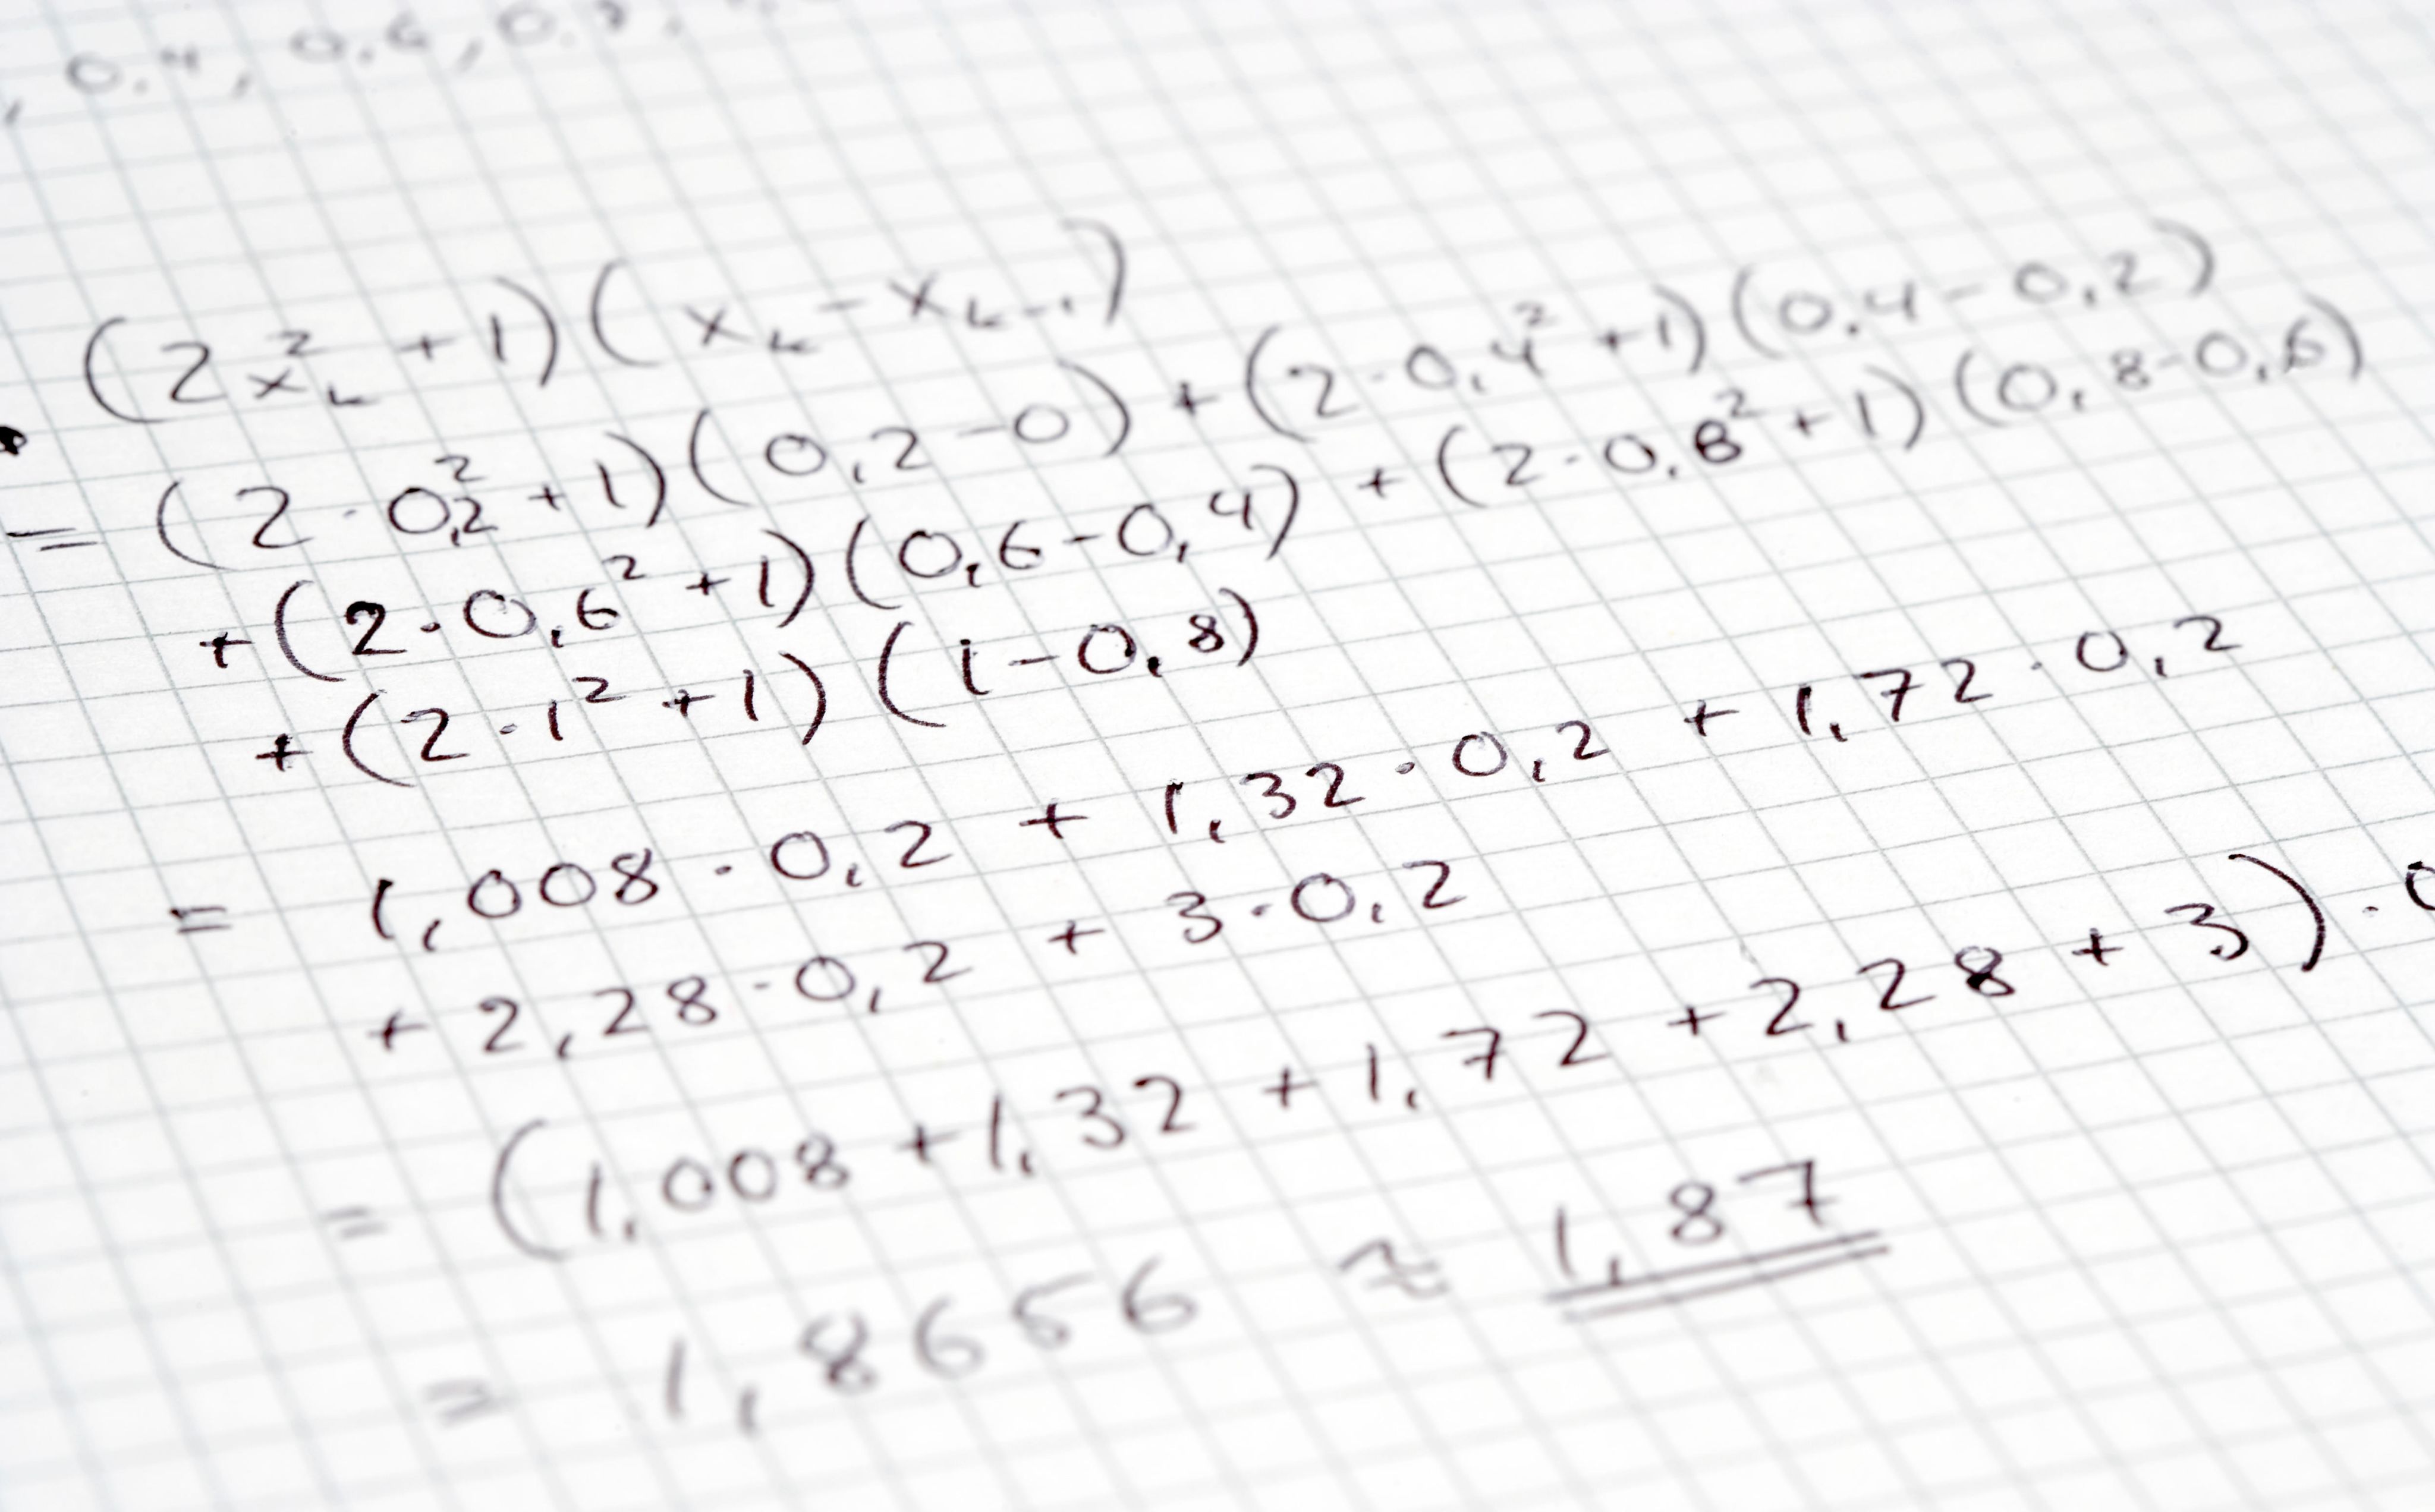 , 0.4, 0.6, 0.8,
(2x_k² + 1)(x_k - x_k-1)
= (2 · 0,2² + 1)(0,2 - 0) + (2 · 0,4² + 1)(0,4 - 0,2)
+ (2 · 0,6² + 1)(0,6 - 0,4) + (2 · 0,8² + 1)(0,8 - 0,6)
+ (2 · 1² + 1)(1 - 0,8)
= 1,008 · 0,2 + 1,32 · 0,2 + 1,72 · 0,2
+ 2,28 · 0,2 + 3 · 0,2
= (1,008 + 1,32 + 1,72 + 2,28 + 3) · 0
= 1,8656 ≈ 1,87